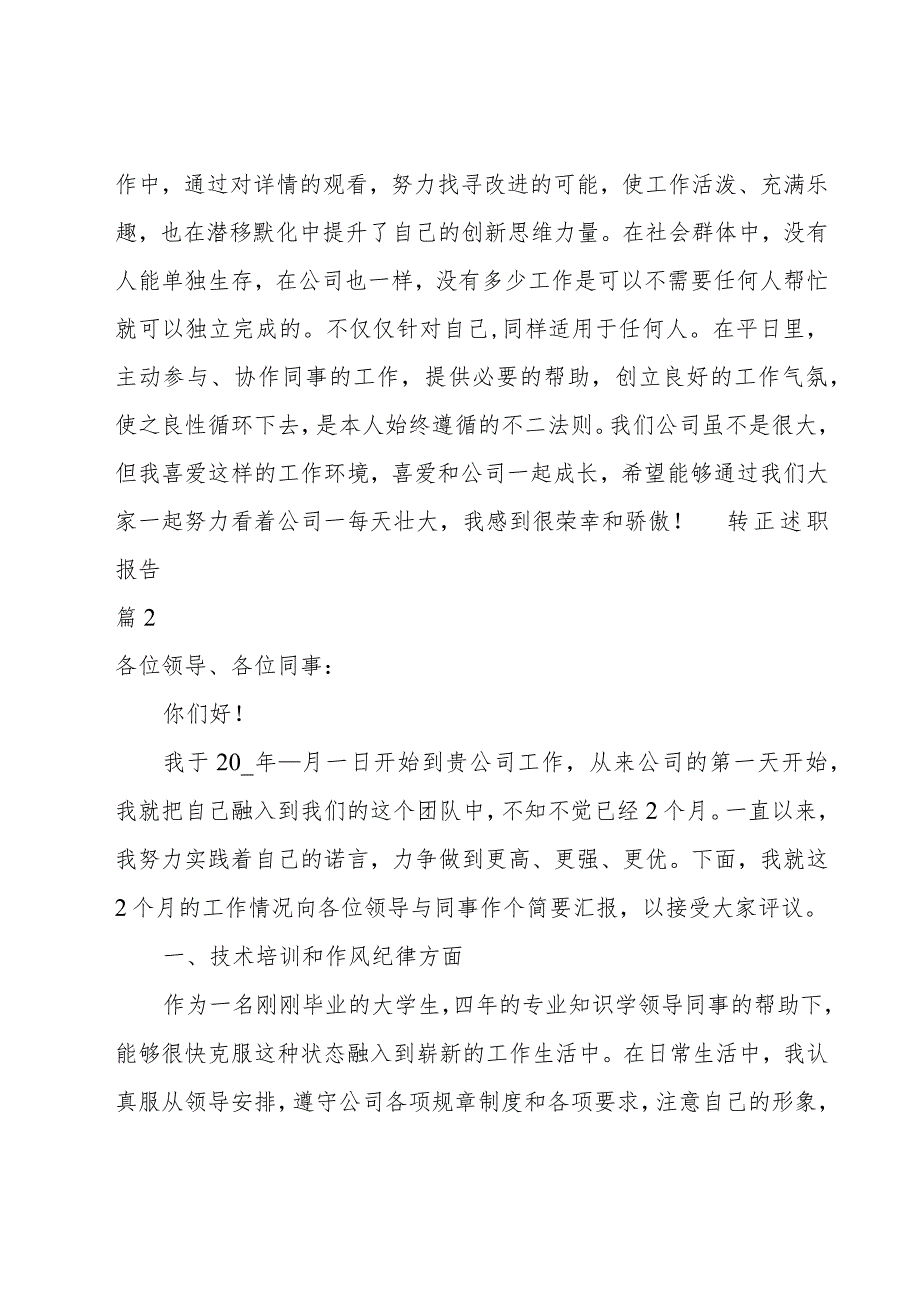 作中，通过对详情的观看，努力找寻改进的可能，使工作活泼、充满乐
趣，也在潜移默化中提升了自己的创新思维力量。在社会群体中，没有
人能单独生存，在公司也一样，没有多少工作是可以不需要任何人帮忙
就可以独立完成的。不仅仅针对自己,同样适用于任何人。在平日里，
主动参与、协作同事的工作，提供必要的帮助，创立良好的工作气氛，
使之良性循环下去，是本人始终遵循的不二法则。我们公司虽不是很大，
但我喜爱这样的工作环境，喜爱和公司一起成长，希望能够通过我们大
家一起努力看着公司一每天壮大，我感到很荣幸和骄傲！ 转正述职
报告
篇2
各位领导、各位同事：
你们好！
我于20_年—月一日开始到贵公司工作，从来公司的第一天开始，
我就把自己融入到我们的这个团队中，不知不觉已经2个月。一直以来，
我努力实践着自己的诺言，力争做到更高、更强、更优。下面，我就这
2个月的工作情况向各位领导与同事作个简要汇报，以接受大家评议。
一、技术培训和作风纪律方面
作为一名刚刚毕业的大学生，四年的专业知识学领导同事的帮助下，
能够很快克服这种状态融入到崭新的工作生活中。在日常生活中，我认
真服从领导安排，遵守公司各项规章制度和各项要求，注意自己的形象，